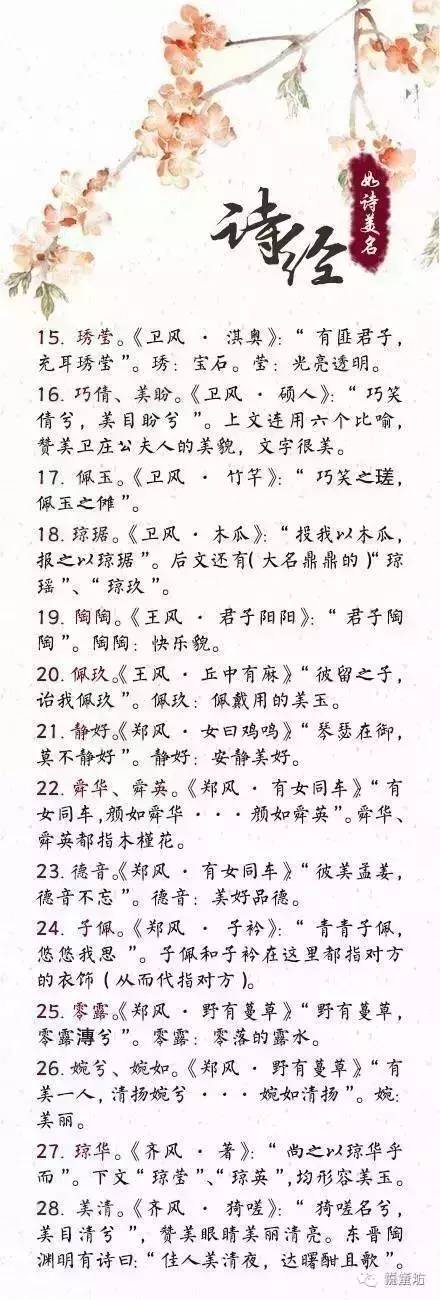 诗经
如诗美名
15. 琇莹。《卫风 · 淇奥》:“ 有匪君子,
充耳琇莹 ”。琇: 宝石。莹: 光亮透明。
16. 巧倩、美盼。《卫风 · 硕人》:“ 巧笑
倩兮, 美目盼兮 ”。上文连用六个比喻,
赞美卫庄公夫人的美貌, 文字很美。
17. 佩玉。《卫风 · 竹竿》:“ 巧笑之瑳,
佩玉之傩 ”。
18. 琼琚。《卫风 · 木瓜》:“ 投我以木瓜,
报之以琼琚 ”。后文还有( 大名鼎鼎的 )“ 琼
瑶 ”、“ 琼玖 ”。
19. 陶陶。《王风 · 君子阳阳》:“ 君子陶
陶 ”。陶陶: 快乐貌。
20. 佩玖。《王风 · 丘中有麻》“ 彼留之子,
诒我佩玖 ”。佩玖: 佩戴用的美玉。
21. 静好。《郑风 · 女曰鸡鸣》:“ 琴瑟在御,
莫不静好 ”。静好: 安静美好。
22. 舜华、舜英。《郑风 · 有女同车》“ 有
女同车, 颜如舜华 · · · 颜如舜英 ”。舜华、
舜英都指木槿花。
23. 德音。《郑风 · 有女同车》“ 彼美孟姜,
德音不忘 ”。德音: 美好品德。
24. 子佩。《郑风 · 子衿》:“ 青青子佩,
悠悠我思 ”。子佩和子衿在这里都指对方
的衣饰 ( 从而代指对方 )。
25. 零露。《郑风 · 野有蔓草》“ 野有蔓草,
零露漙兮 ”。零露: 零落的露水。
26. 婉兮、婉如。《郑风 · 野有蔓草》“ 有
美一人, 清扬婉兮 · · · 婉如清扬 ”。婉:
美丽。
27. 琼华。《齐风 · 著》:“ 尚之以琼华乎
而 ”。下文 “ 琼莹 ”、“ 琼英 ”, 均形容美玉。
28. 美清。《齐风 · 猗嗟》:“ 猗嗟名兮,
美目清兮 ”, 赞美眼睛美丽清亮。东晋陶
渊明有诗曰:“ 佳人美清夜, 达曙酣且歌 ”。